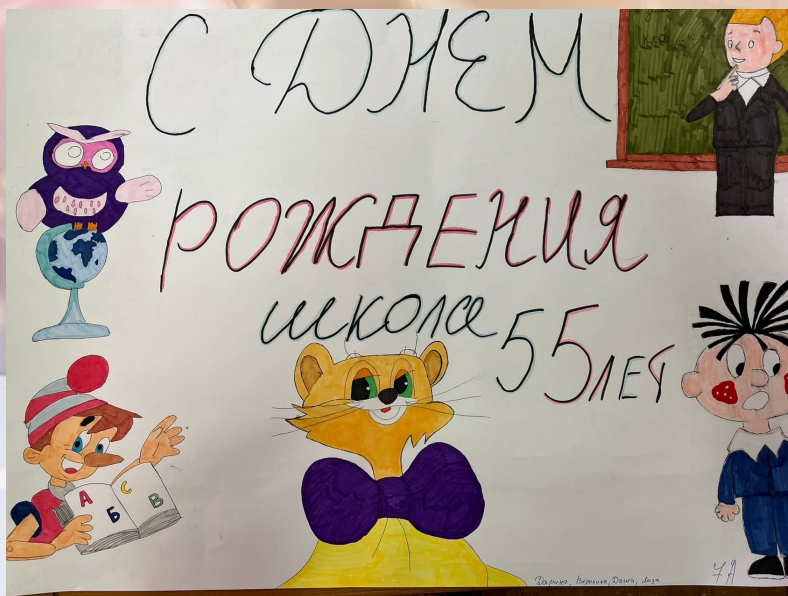 С ДНЕМ
РОЖДЕНИЯ
школа
55 ЛЕТ
А С
Б В
Дарина, Вероника, Даша, Лиза
7 А